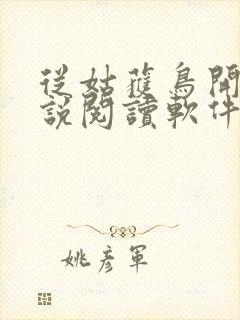 從姑獲鳥開
說閱讀軟件
姚彥軍